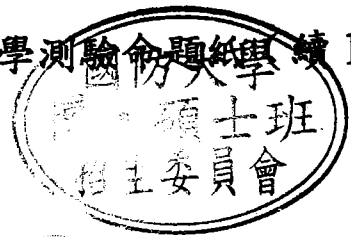 學測驗命題紙 續
國防大學
碩士班
招生委員會